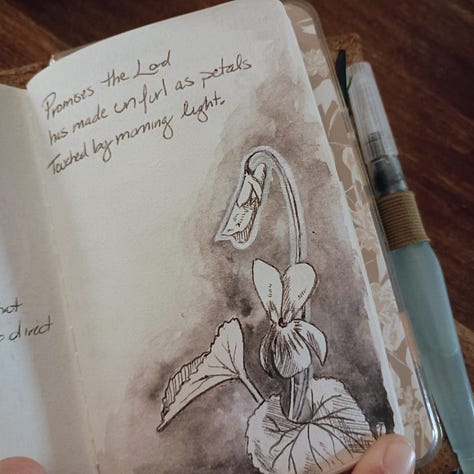 Promises the Lord
has made unfurl as petals
Touched by morning light.
not
direct